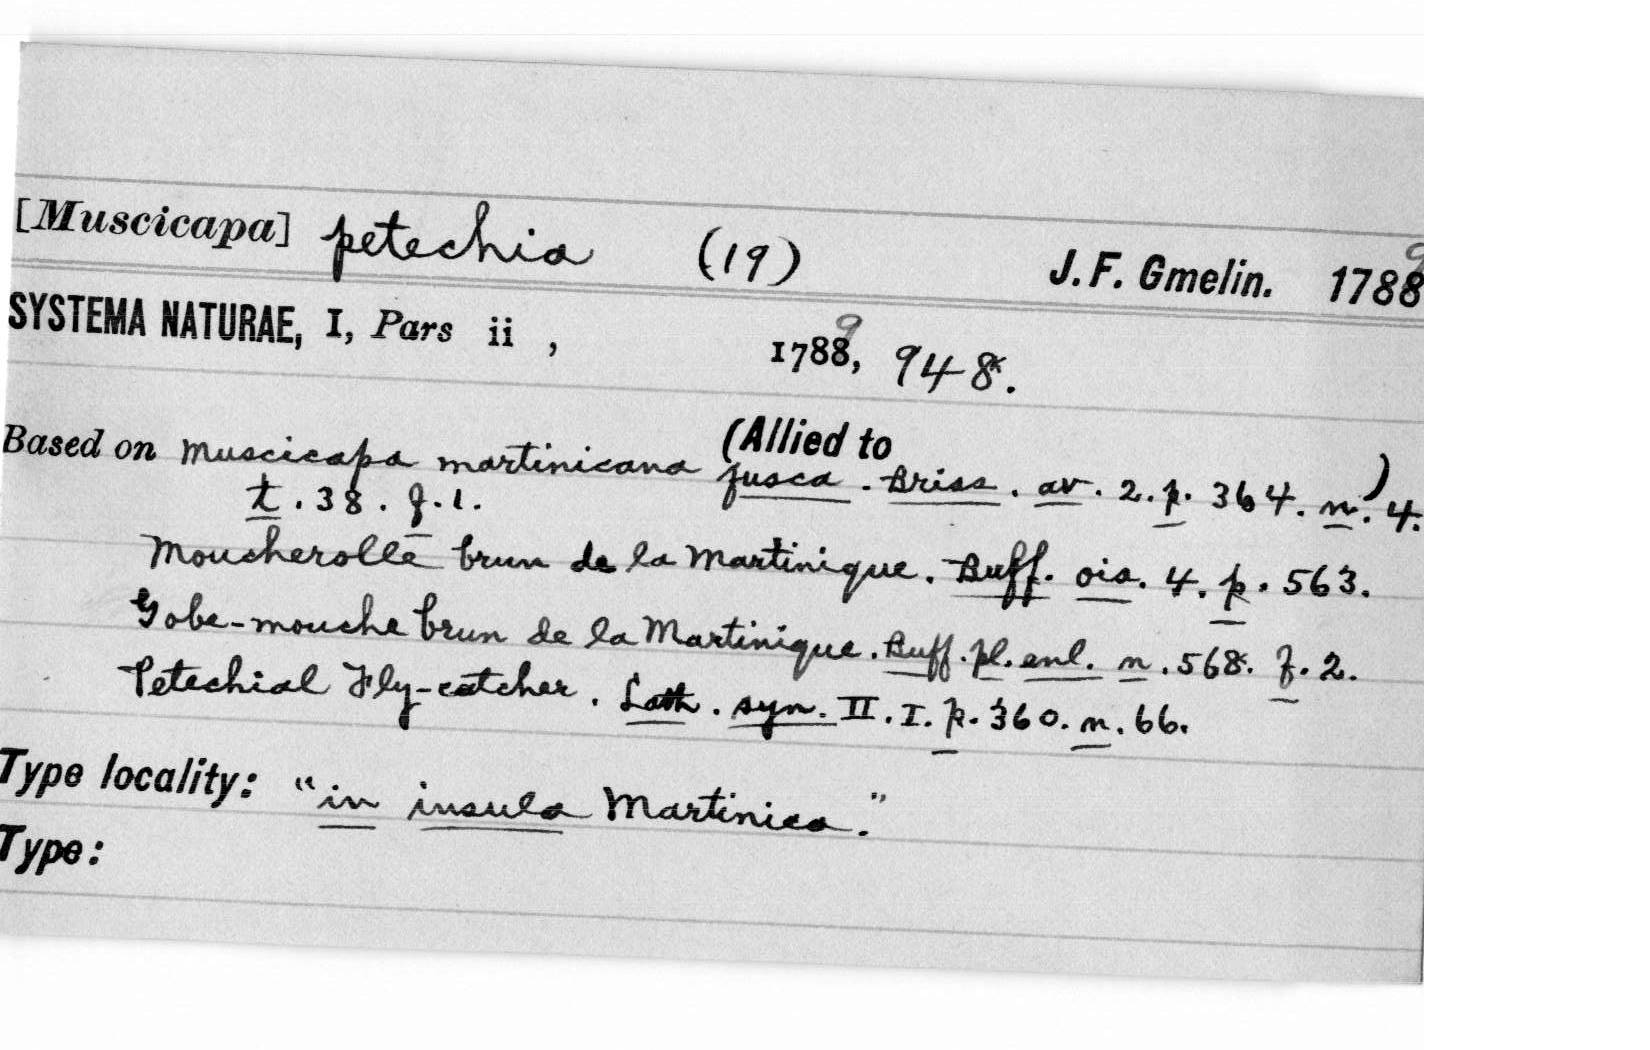 [Muscicapa] petechia (19) J. F. Gmelin. 1788 9
SYSTEMA NATURAE, I, Pars ii , 1788, 9 948.
(Allied to )
Based on Muscicapa martinicana fusca. Briss. av. 2. p. 364. n. 4.
t. 38. f. 1.
Moucherolle brun de la Martinique. Buff. ois. 4. p. 563.
Gobe-mouche brun de la Martinique. Buff. pl. enl. n. 568. f. 2.
Petechial Fly-catcher. Lath. syn. II. I. p. 360. n. 66.
Type locality: "in insula Martinica."
Type: